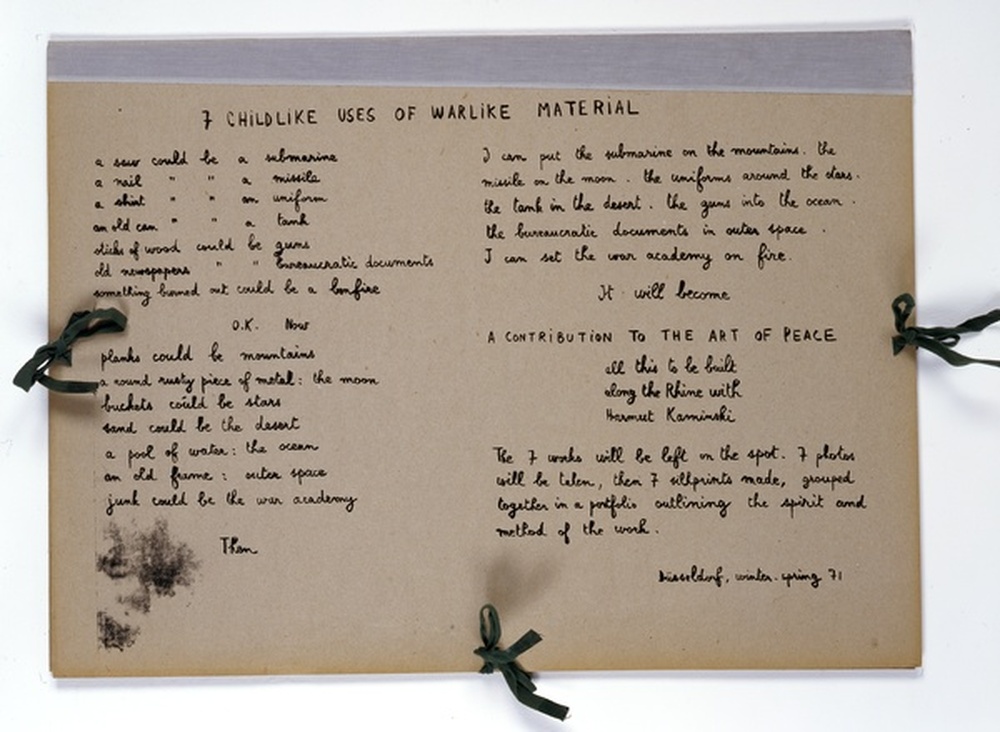 7 CHILDLIKE USES OF WARLIKE MATERIAL
a saw could be a submarine
a nail " " a missile
a shirt " " an uniform
an old can " " a tank
sticks of wood could be guns
old newspapers " " bureaucratic documents
something burned out could be a bonfire
O.K. Now
planks could be mountains
a round rusty piece of metal: the moon
buckets could be stars
sand could be the desert
a pool of water: the ocean
an old frame: outer space
junk could be the war academy
Then
I can put the submarine on the mountains. the
missile on the moon. the uniforms around the stars.
the tank in the desert. the guns into the ocean.
the bureaucratic documents in outer space.
I can set the war academy on fire.
It will become
A CONTRIBUTION TO THE ART OF PEACE
all this to be built
along the Rhine with
Harmut Kaminski
The 7 works will be left on the spot. 7 photos
will be taken, then 7 silkprints made, grouped
together in a portfolio outlining the spirit and
method of the work.
Düsseldorf, winter-spring 71